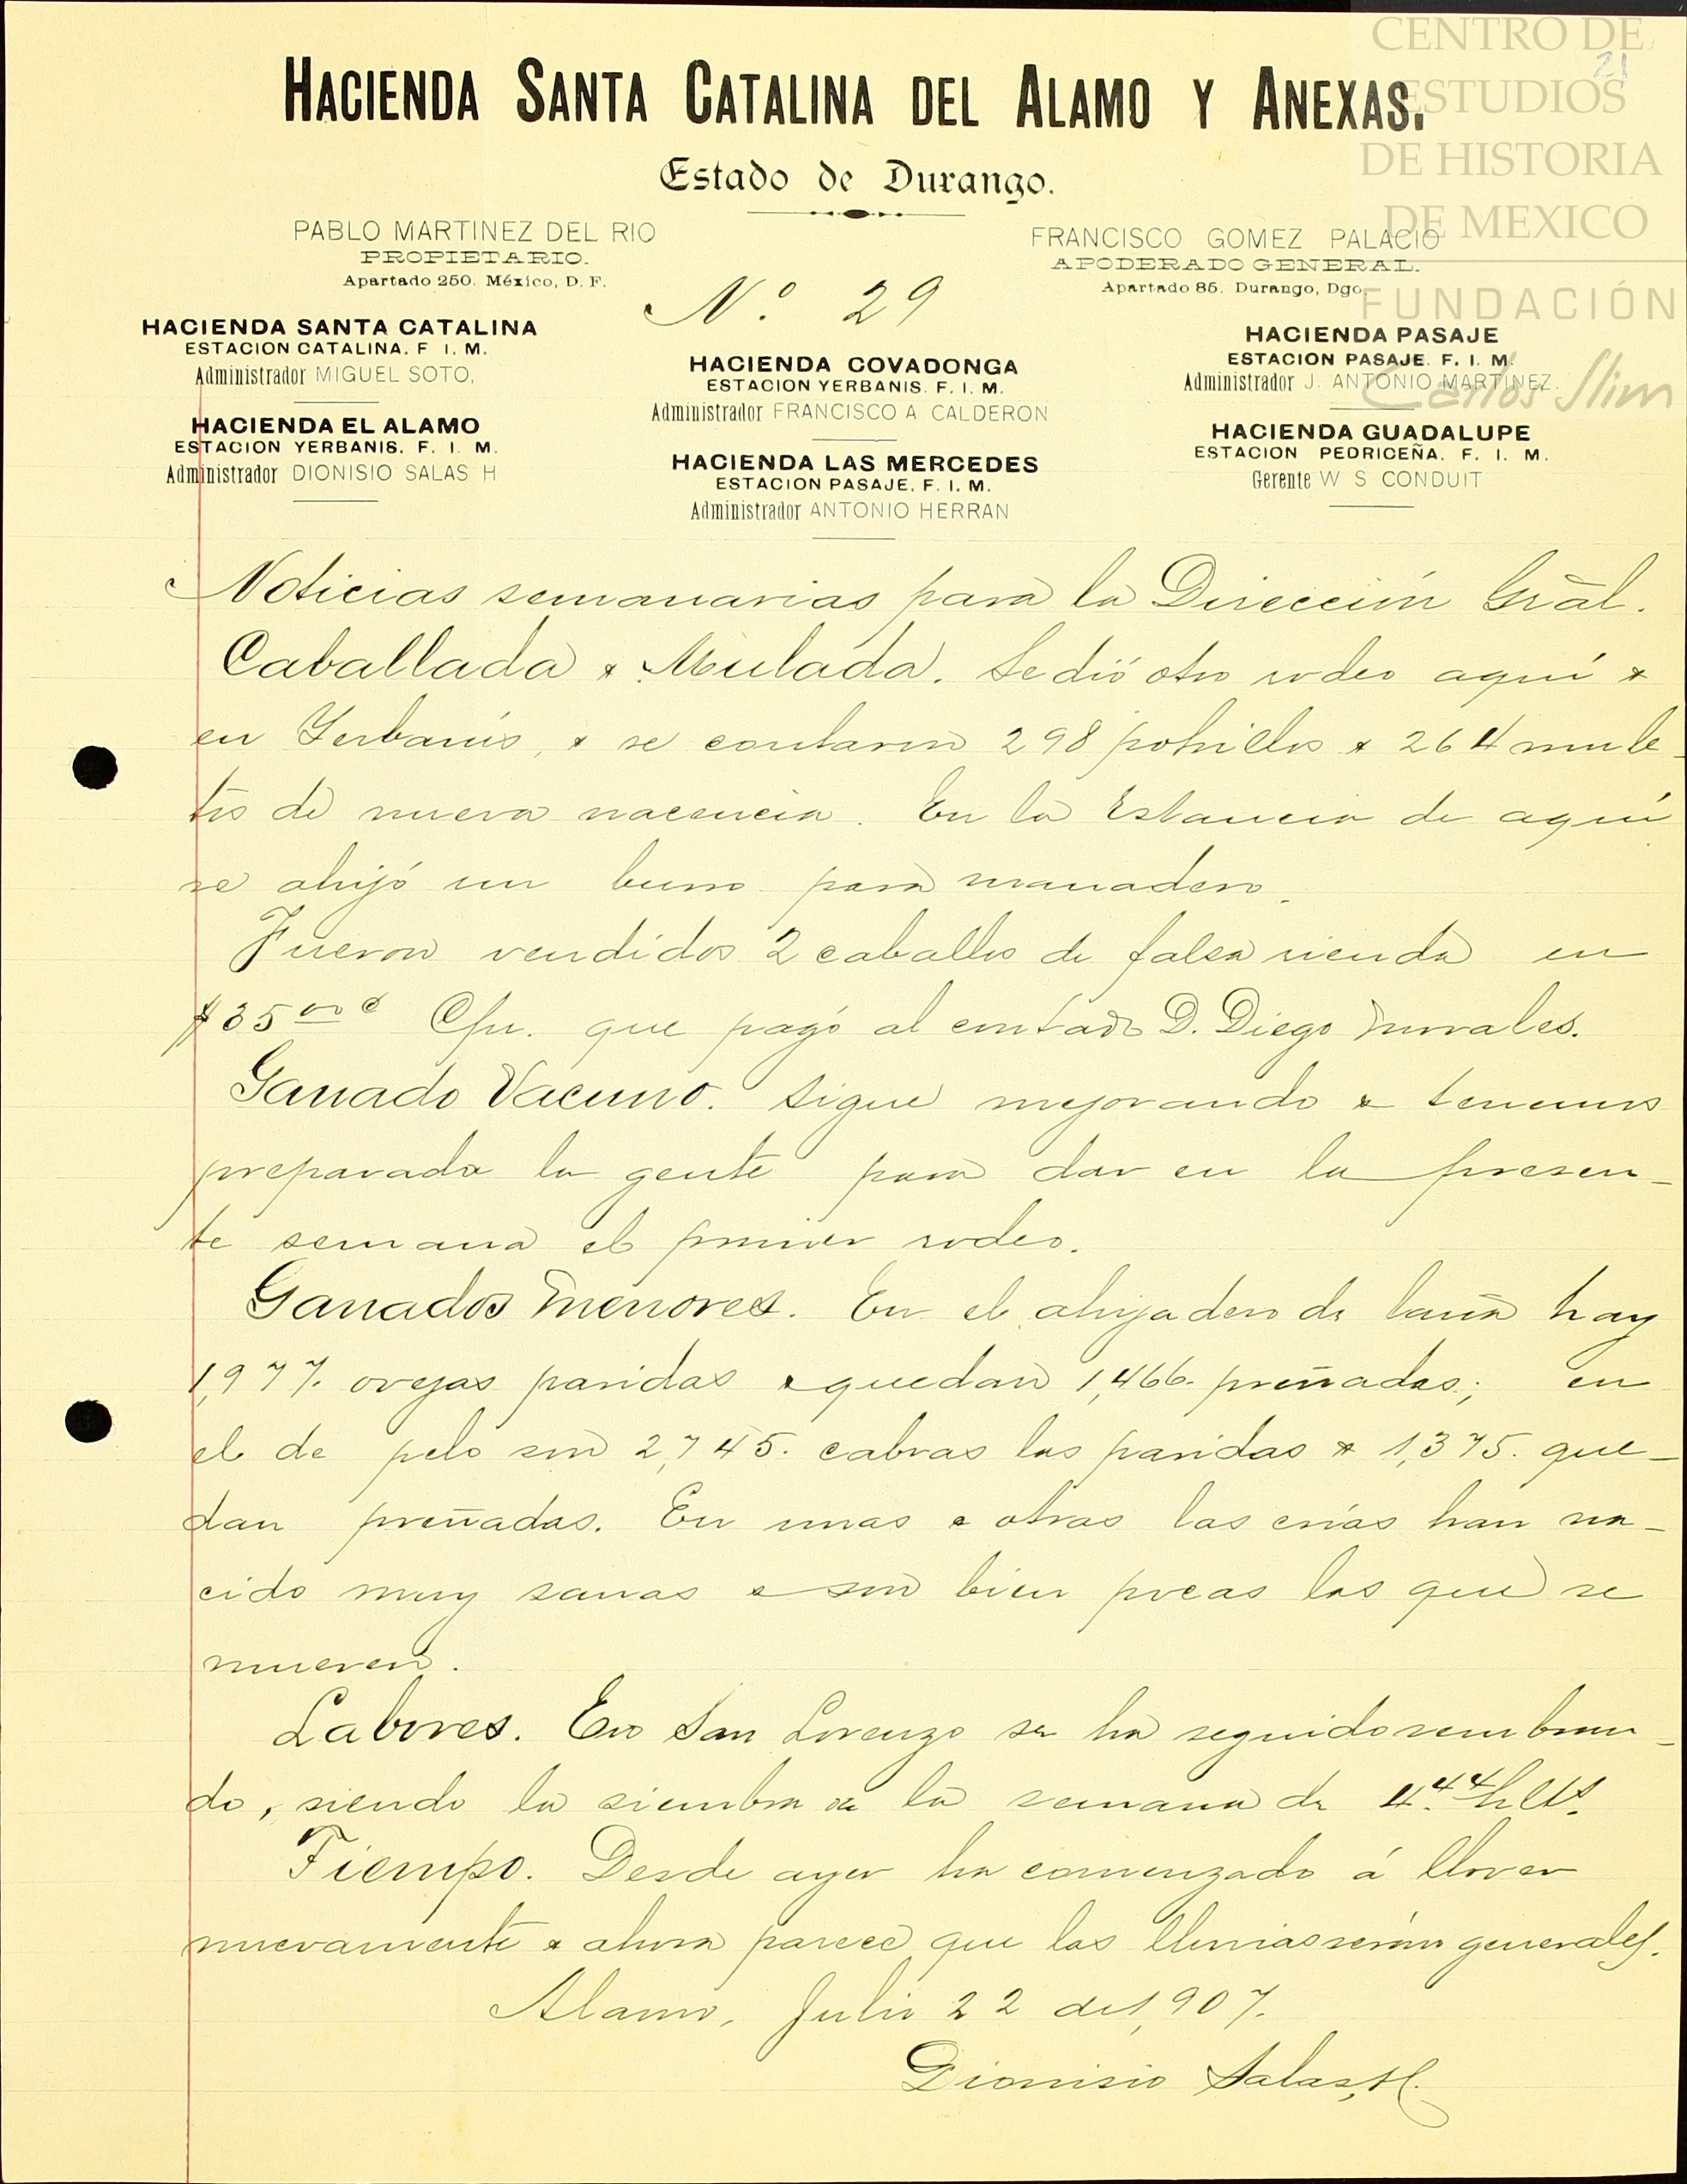 CENTRO DE
ESTUDIOS
DE HISTORIA
DE MEXICO
FUNDACIÓN
Carlos Slim
21
HACIENDA SANTA CATALINA DEL ALAMO Y ANEXAS.
Estado de Durango.
PABLO MARTINEZ DEL RIO
PROPIETARIO.
Apartado 250. México, D. F.
FRANCISCO GOMEZ PALACIO
APODERADO GENERAL.
Apartado 85. Durango, Dgo.
Nº. 29
HACIENDA SANTA CATALINA
ESTACION CATALINA. F. I. M.
Administrador MIGUEL SOTO,
HACIENDA EL ALAMO
ESTACION YERBANIS. F. I. M.
Administrador DIONISIO SALAS H
HACIENDA COVADONGA
ESTACION YERBANIS. F. I. M.
Administrador FRANCISCO A CALDERON
HACIENDA LAS MERCEDES
ESTACION PASAJE. F. I. M.
Administrador ANTONIO HERRAN
HACIENDA PASAJE
ESTACION PASAJE. F. I. M.
Administrador J. ANTONIO MARTINEZ.
HACIENDA GUADALUPE
ESTACION PEDRICEÑA. F. I. M.
Gerente W S CONDUIT
Noticias semanarias para la Dirección Grãl.
Caballada & Mulada. Se dió otro rodeo aquí &
en Yerbanís, & se contaron 298 potrillos & 264 mule-
tos de nueva nacencia. En la Estancia de aquí
se ahijó un burro para manadero.
Fueron vendidos 2 caballos de falsa rienda en
$35.00 c que pagó al contado D. Diego Morales.
Ganado Vacuno. Sigue mejorando & tenemos
preparada la gente para dar en la presen-
te semana el primer rodeo.
Ganados Menores. En el ahijadero de lana hay
1,977. ovejas paridas & quedan 1,466. preñadas; en
el de pelo son 2,745. cabras las paridas & 1,375. que-
dan preñadas. En unas & otras las crías han na-
cido muy sanas & son bien pocas las que se
mueren.
Labores. En San Lorenzo se ha seguido sembran-
do, siendo la siembra de la semana de 4.44 hlts.
Tiempo. Desde ayer ha comenzado á llover
nuevamente & ahora parece que las lluvias serán generales.
Alamo, Julio 22 de 1,907.
Dionisio Salas, H.